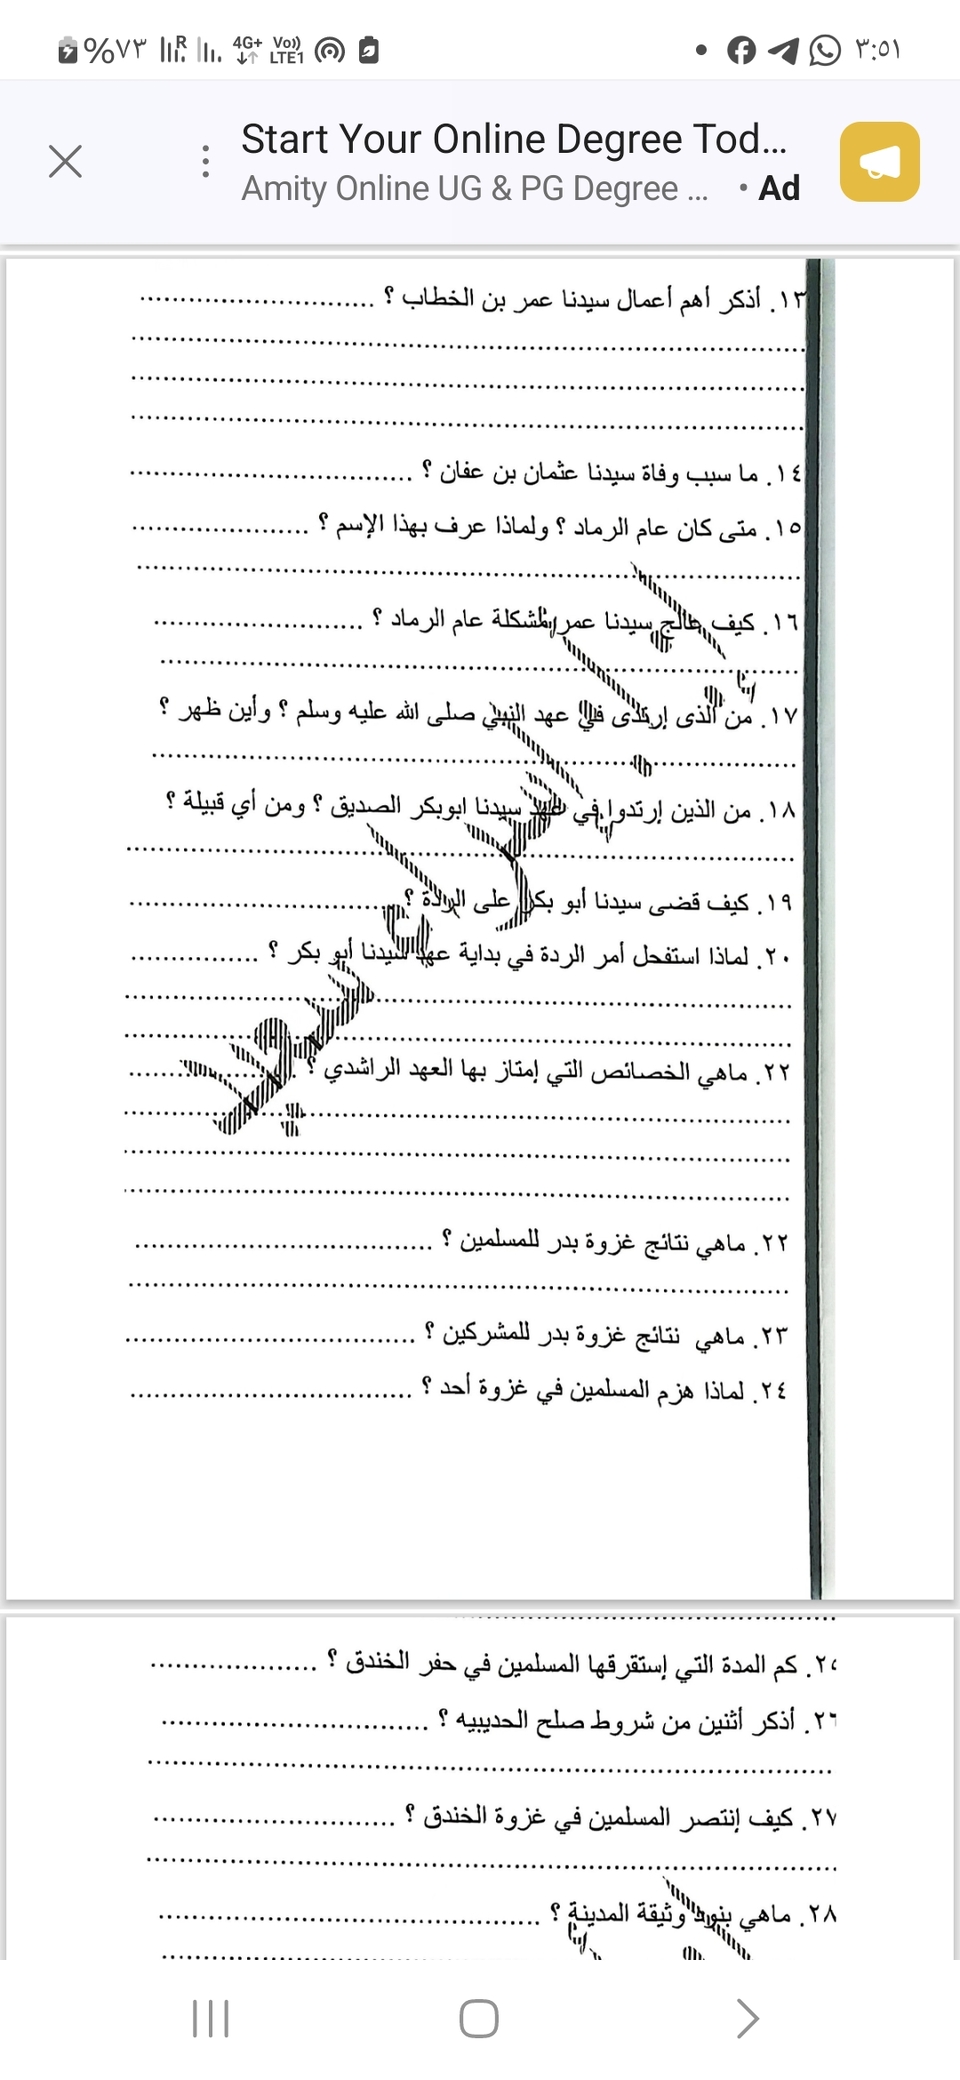 %٧٣ R 4G+ Vo)) LTE1 ٣:٥١
Start Your Online Degree Tod...
Amity Online UG & PG Degree ... • Ad
١٣. أذكر أهم أعمال سيدنا عمر بن الخطاب ؟ ............................
................................................................................
................................................................................
................................................................................
١٤. ما سبب وفاة سيدنا عثمان بن عفان ؟ ..................................
١٥. متى كان عام الرماد ؟ ولماذا عرف بهذا الإسم ؟ .....................
................................................................................
١٦. كيف عالج سيدنا عمر مشكلة عام الرماد ؟ .........................
................................................................................
١٧. من الذى إرتدى في عهد النبي صلى الله عليه وسلم ؟ وأين ظهر ؟
................................................................................
١٨. من الذين إرتدوا في عهد سيدنا ابوبكر الصديق ؟ ومن أي قبيلة ؟
................................................................................
١٩. كيف قضى سيدنا أبو بكر على الردة ؟ ................................
٢٠. لماذا استفحل أمر الردة في بداية عهد سيدنا أبو بكر ؟ ...............
................................................................................
................................................................................
٢٢. ماهي الخصائص التي إمتاز بها العهد الراشدي ؟ ....................
................................................................................
................................................................................
................................................................................
٢٢. ماهي نتائج غزوة بدر للمسلمين ؟ ....................................
................................................................................
٢٣. ماهي نتائج غزوة بدر للمشركين ؟ ...................................
٢٤. لماذا هزم المسلمين في غزوة أحد ؟ ..................................
................................................................................
كم المدة التي إستقرقها المسلمين في حفر الخندق ؟ ....................
٢٦. أذكر أثنين من شروط صلح الحديبيه ؟ ................................
................................................................................
٢٧. كيف إنتصر المسلمين في غزوة الخندق ؟ .............................
................................................................................
٢٨. ماهي بنود وثيقة المدينة ؟ ..............................................
................................................................................